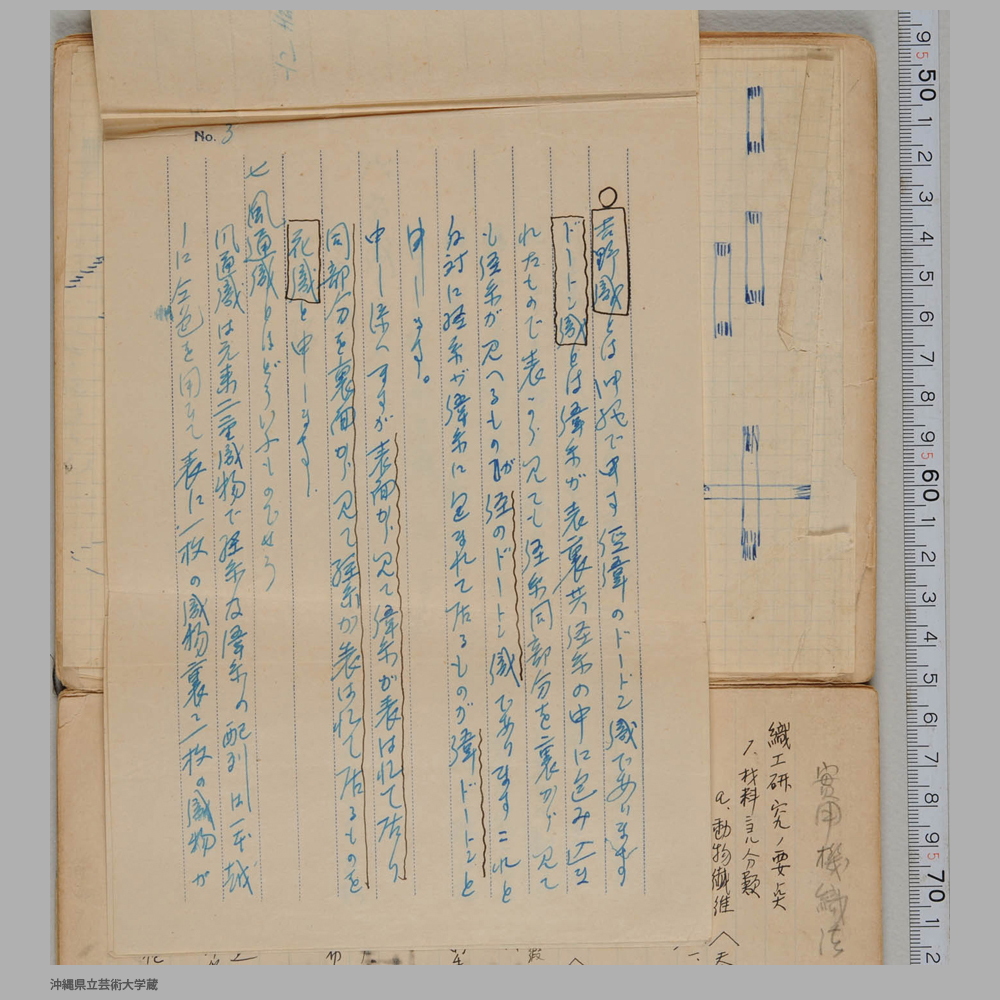 No. 3
吉野織とは 申す 経緯のドートン織であります
ドートン織とは緯糸が表裏共経糸の中に包み込ま
れたもので表から見ても経糸同部分を裏から見て
も経糸が見へるものが経のドートン織であります これと
反対に経糸が緯糸に包まれて居るものが緯ドートンと
申します。
申し添へますが表面から見て緯糸が表はれて居り
同部分を裏面から見て経糸が表はれて居るものを
花織と申します
七 風通織とはどういふものでせう
風通織は元来二重織物で経糸及緯糸の配列は一本越
しに 色を用ゐて表に一枚の織物裏に一枚の織物が
實用機織法
織工研究ノ要点
1. 材料ヨル分類
a. 動物繊維
沖縄県立芸術大学蔵
9 5 50 1 2 3 4 5 6 7 8 9 5 60 1 2 3 4 5 6 7 8 9 5 70 1 2